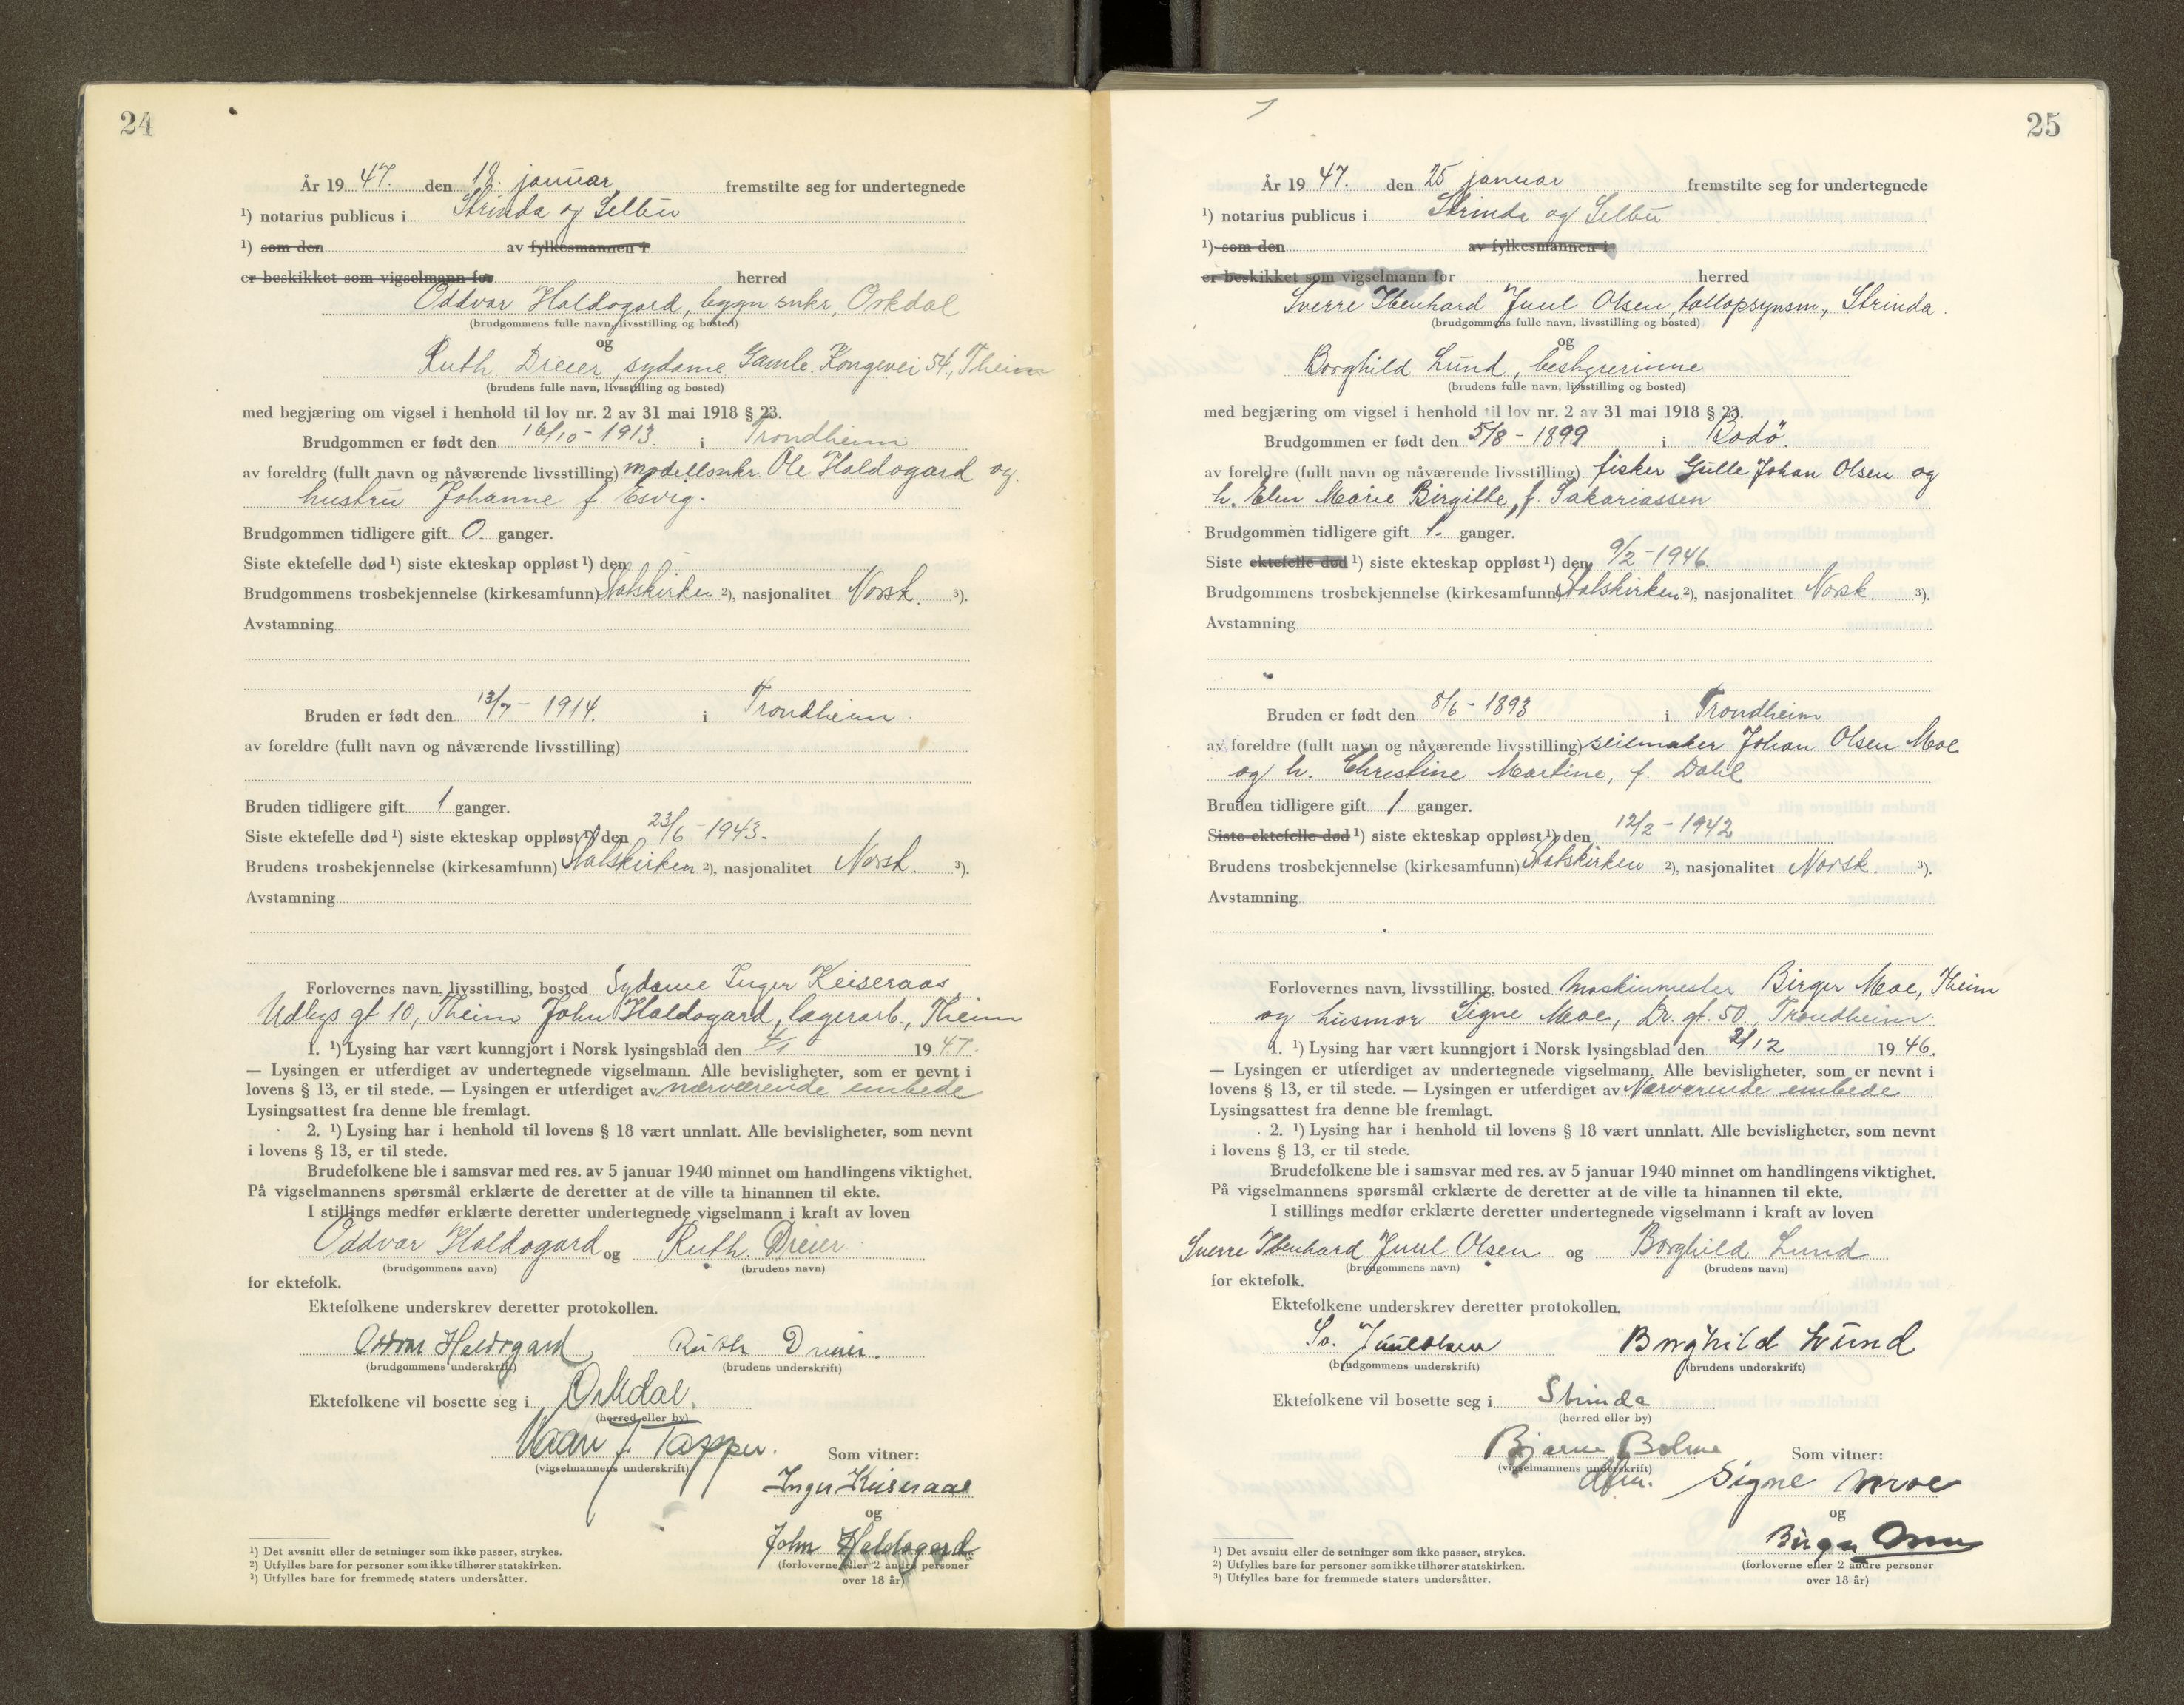 24
År 19 47. den 18. januar fremstilte seg for undertegnede
¹) notarius publicus i Strinda og Selbu
¹) som den av fylkesmannen i
er beskikket som vigselmann for herred
Oddvar Haldogard, bygn.snkr, Orkdal
(brudgommens fulle navn, livsstilling og bosted)
og
Ruth Dreier, sydame Gamle Kongevei 54, Theim
(brudens fulle navn, livsstilling og bosted)
med begjæring om vigsel i henhold til lov nr. 2 av 31 mai 1918 § 23.
Brudgommen er født den 16/10 - 1913. i Trondheim
av foreldre (fullt navn og nåværende livsstilling) modellsnkr. Ole Haldogard og
hustru Johanne f. Esvig.
Brudgommen tidligere gift 0. ganger.
Siste ektefelle død ¹) siste ekteskap oppløst ¹) den
Brudgommens trosbekjennelse (kirkesamfunn) Statskirken ²), nasjonalitet Norsk. ³).
Avstamning
Bruden er født den 13/7 - 1914. i Trondheim.
av foreldre (fullt navn og nåværende livsstilling)
Bruden tidligere gift 1 ganger.
Siste ektefelle død ¹) siste ekteskap oppløst ¹) den 23/6 - 1943.
Brudens trosbekjennelse (kirkesamfunn) Statskirken ²), nasjonalitet Norsk. ³).
Avstamning
Forlovernes navn, livsstilling, bosted Sydame Inger Keiseraas,
Udbys gt 10, Theim John Haldogard, lagerarb., Theim
1. ¹) Lysing har vært kunngjort i Norsk lysingsblad den 4/1 19 47.
— Lysingen er utferdiget av undertegnede vigselmann. Alle bevisligheter, som er nevnt i
lovens § 13, er til stede. — Lysingen er utferdiget av nærværende embede
Lysingsattest fra denne ble fremlagt.
2. ¹) Lysing har i henhold til lovens § 18 vært unnlatt. Alle bevisligheter, som nevnt
i lovens § 13, er til stede.
Brudefolkene ble i samsvar med res. av 5 januar 1940 minnet om handlingens viktighet.
På vigselmannens spørsmål erklærte de deretter at de ville ta hinannen til ekte.
I stillings medfør erklærte deretter undertegnede vigselmann i kraft av loven
Oddvar Haldogard og Ruth Dreier
(brudgommens navn) (brudens navn)
for ektefolk.
Ektefolkene underskrev deretter protokollen.
Oddvar Haldogard Ruth Dreier.
(brudgommens underskrift) (brudens underskrift)
Ektefolkene vil bosette seg i Orkdal.
(herred eller by)
(vigselmannens underskrift) Som vitner:
Inger Keiseraas
og
John Haldogard
(forloverne eller 2 andre personer
over 18 år)
¹) Det avsnitt eller de setninger som ikke passer, strykes.
²) Utfylles bare for personer som ikke tilhører statskirken.
³) Utfylles bare for fremmede staters undersåtter.
25
År 19 47. den 25 januar fremstilte seg for undertegnede
¹) notarius publicus i Strinda og Selbu
¹) som den av fylkesmannen i
er beskikket som vigselmann for herred
Sverre Ibenhard Juul Olsen, tollopsynsm., Strinda.
(brudgommens fulle navn, livsstilling og bosted)
og
Borghild Lund, bestyrerinne
(brudens fulle navn, livsstilling og bosted)
med begjæring om vigsel i henhold til lov nr. 2 av 31 mai 1918 § 23.
Brudgommen er født den 5/8 - 1899 i Bodö.
av foreldre (fullt navn og nåværende livsstilling) fisker Gulle Johan Olsen og
h. Elen Marie Birgitte, f. Sakariassen
Brudgommen tidligere gift 1. ganger.
Siste ektefelle død ¹) siste ekteskap oppløst ¹) den 9/2 - 1946.
Brudgommens trosbekjennelse (kirkesamfunn) Statskirken ²), nasjonalitet Norsk. ³).
Avstamning
Bruden er født den 8/6 - 1893 i Trondheim
av foreldre (fullt navn og nåværende livsstilling) seilmaker Johan Olsen Moe
og h. Christine Martine, f. Dahl
Bruden tidligere gift 1 ganger.
Siste ektefelle død ¹) siste ekteskap oppløst ¹) den 12/2 - 1942
Brudens trosbekjennelse (kirkesamfunn) Statskirken ²), nasjonalitet Norsk. ³).
Avstamning
Forlovernes navn, livsstilling, bosted Maskinmester Birger Moe, Theim
og husmor Signe Moe, Dr. gt. 50., Trondheim.
1. ¹) Lysing har vært kunngjort i Norsk lysingsblad den 2/12 19 46.
— Lysingen er utferdiget av undertegnede vigselmann. Alle bevisligheter, som er nevnt i
lovens § 13, er til stede. — Lysingen er utferdiget av Nærværende embede
Lysingsattest fra denne ble fremlagt.
2. ¹) Lysing har i henhold til lovens § 18 vært unnlatt. Alle bevisligheter, som nevnt
i lovens § 13, er til stede.
Brudefolkene ble i samsvar med res. av 5 januar 1940 minnet om handlingens viktighet.
På vigselmannens spørsmål erklærte de deretter at de ville ta hinannen til ekte.
I stillings medfør erklærte deretter undertegnede vigselmann i kraft av loven
Sverre Ibenhard Juul Olsen og Borghild Lund
(brudgommens navn) (brudens navn)
for ektefolk.
Ektefolkene underskrev deretter protokollen.
Sv. Juul Olsen Borghild Lund
(brudgommens underskrift) (brudens underskrift)
Ektefolkene vil bosette seg i Strinda
(herred eller by)
Bjarne Bolme Som vitner:
(vigselmannens underskrift)
Signe Moe
og
Birger Moe
(forloverne eller 2 andre personer
over 18 år)
¹) Det avsnitt eller de setninger som ikke passer, strykes.
²) Utfylles bare for personer som ikke tilhører statskirken.
³) Utfylles bare for fremmede staters undersåtter.